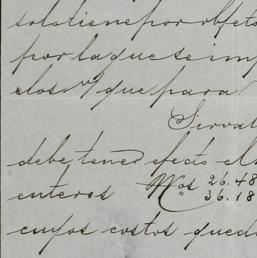 solo tiene por objeto
por la que se imp
clos y que para
Servat
debe tener efecto el s
enteros Nos 26.48
" 36.18
cuyos costos qued